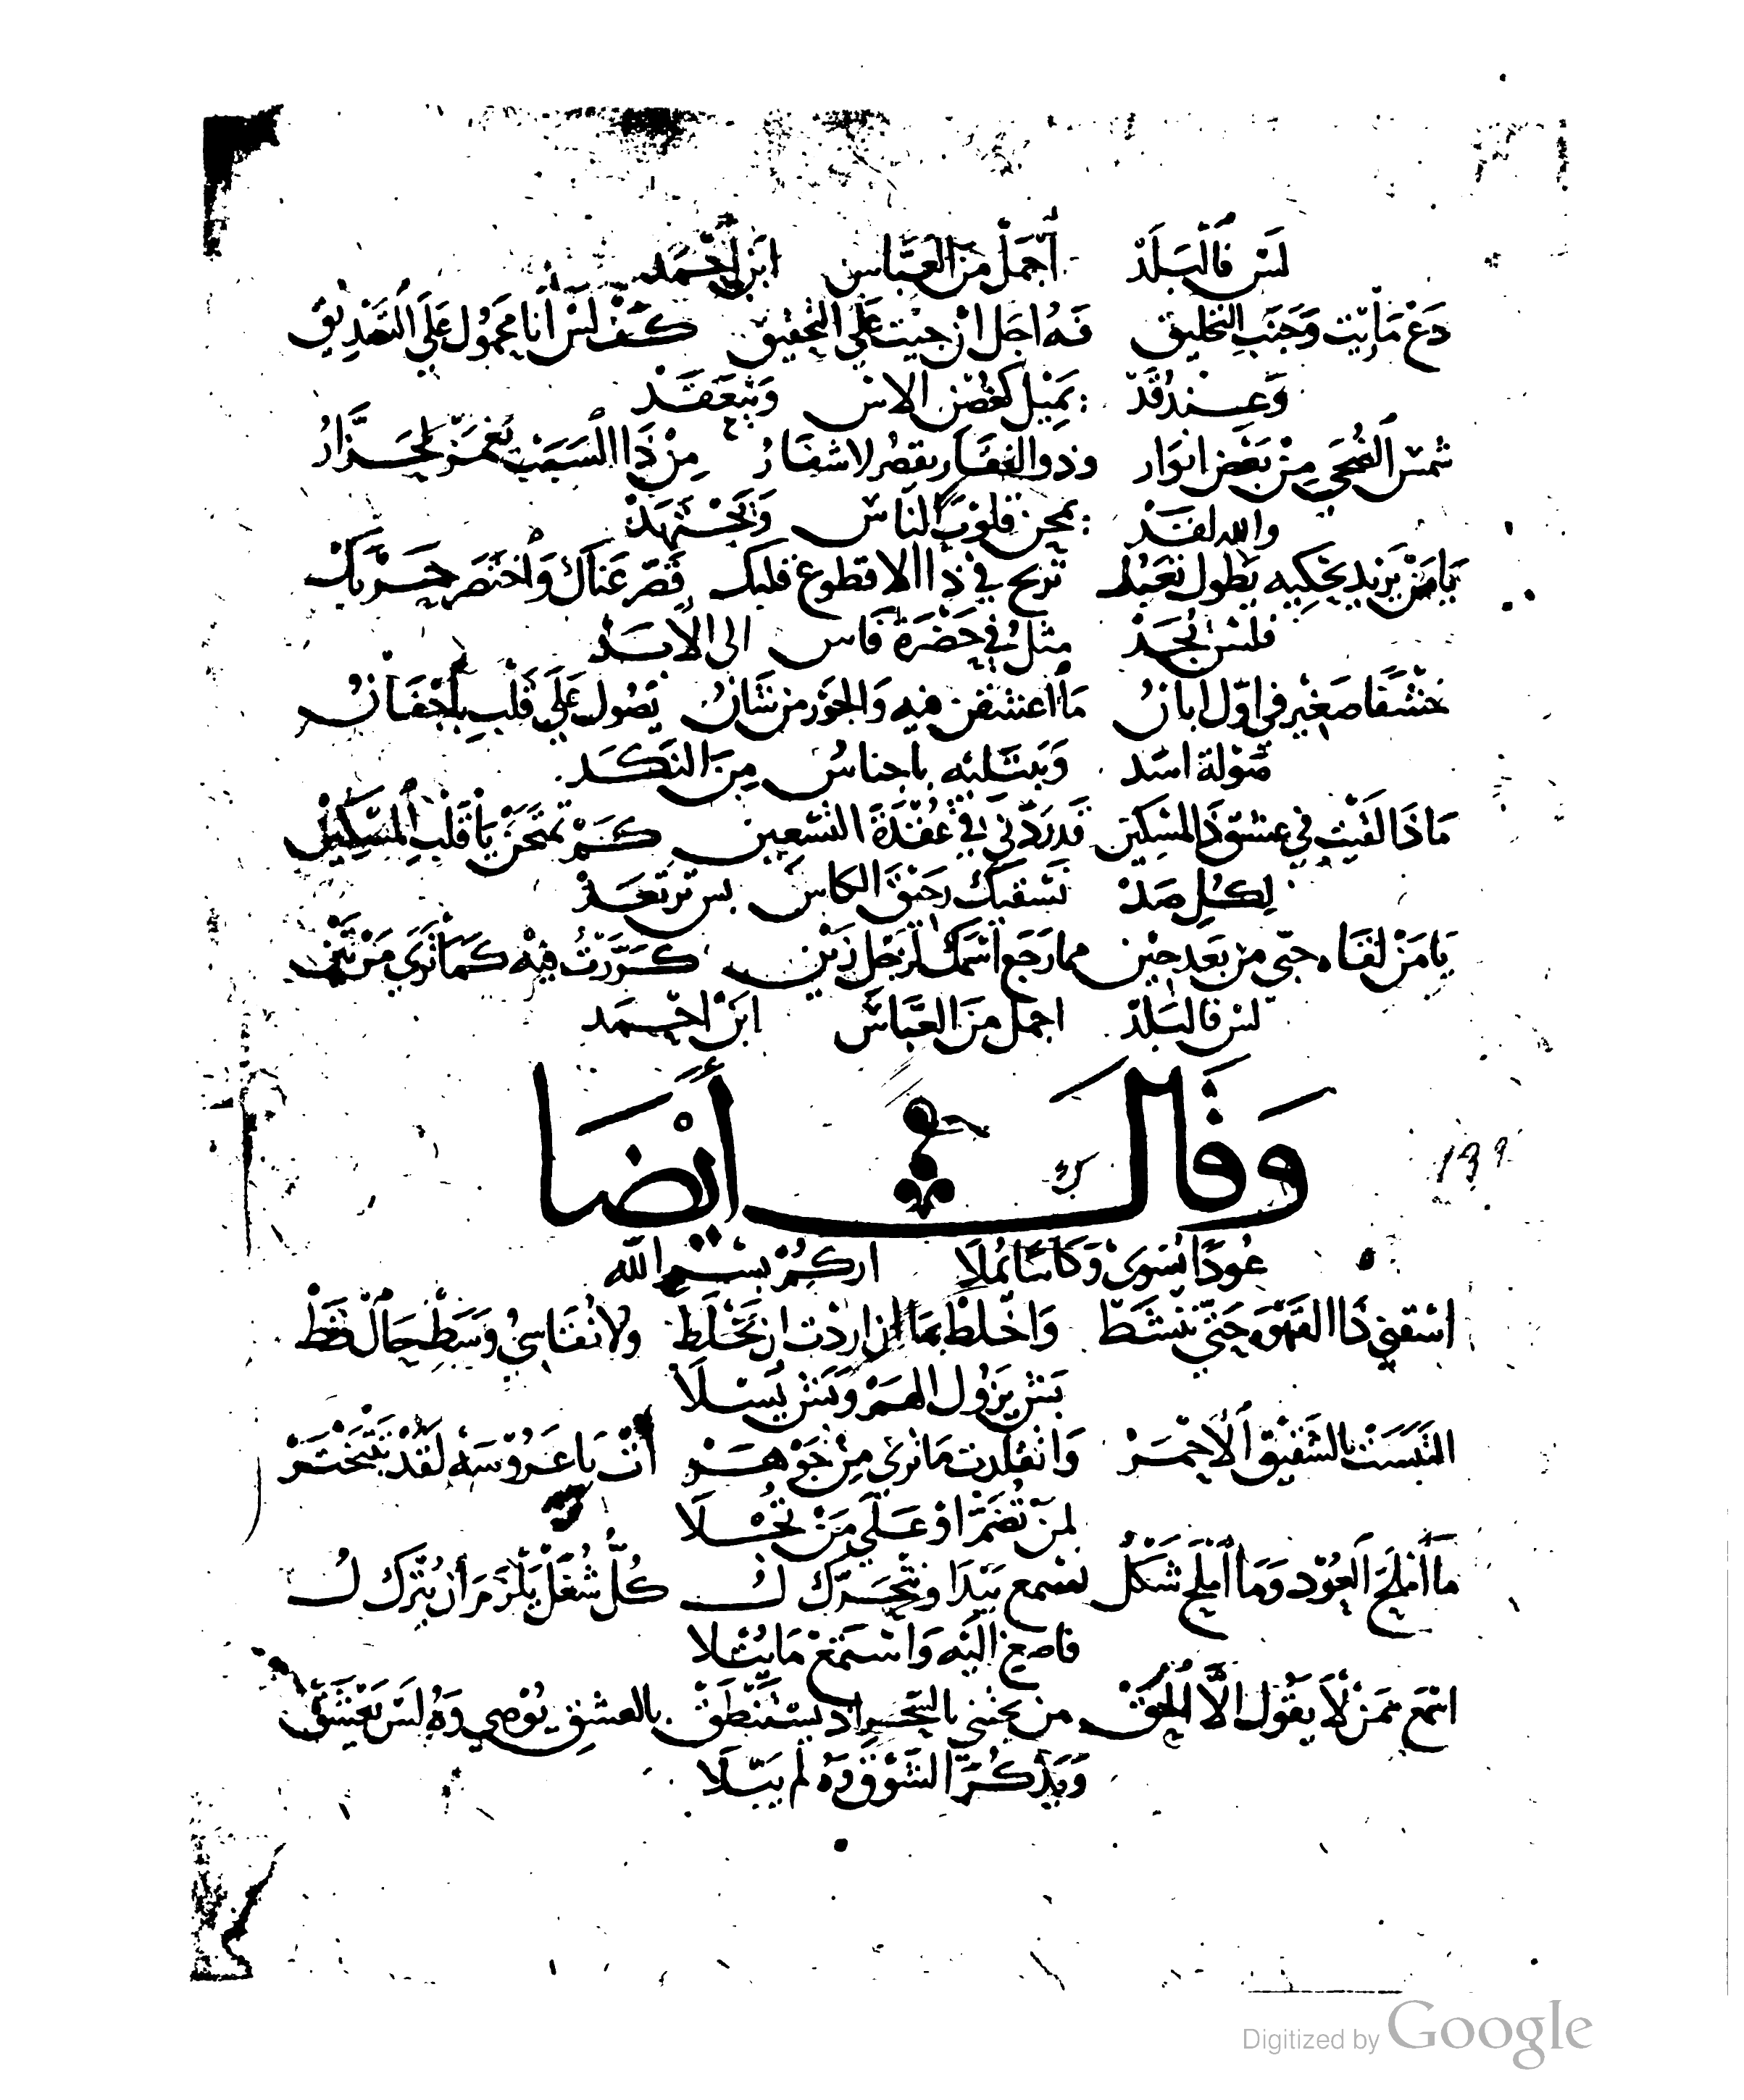 لَسْ فَالْبَلَدْ أَجْمَلْ مِنَ الْعَبَّاسِ ابْنِ أَحْمَد
دَعْ مَا رِيتْ وَجَنِّبِ التخليق فَهُ اجَل انْ جِيتْ عَلَى التحقيق كَفْ لَسْ أَنَا مَحْمُول عَلَى التَّصْدِيق
وَعِنْدُ قَدّ يَمِيل كَغُصْنِ الاس وَيَنْعَقَدْ
شمس الضُّحَى مِنْ بَعْض انوَار وذو الفقَار يقصُر لاشفَارُ مِنْ ذَا السَبَب يَغْمَزْ لِجَزَّارُ
والله لقَدْ يمحن قلوبَ النَّاس وَيَجْتَهَدْ
يَا مَنْ يَرِيد يَحْكِيه بطول تعَبُك تريح في ذا الاقطوع قلبك قَصّر عَنَاكْ وَاخْتصَر حَرْبَكْ
فلسْ تجَدْ مثلُ في حَضْرَة فَاس الى الْأَبَدْ
خشْفًا صَغير في اوّل ابانُ مَا اعشقن فيه وَالجَوْر من شَانُ يَصُول عَلَى قَلْبِي بِأَجْفَانُ
صَوْلة اسَد وَيَبْتَلِيه باجناسْ مِنَ النَكَد
مَاذَا لَقيتْ في عشق ذَا المسْكِين قَدْ رَدَّنِي في عُقْدَةَ التسْعِين كَمْ تَمْتَحَنْ يَا قَلْب المسْكِين
لِكُل صَدْ تَسْقِيكْ رحيقَ الكاس بس ترتعَدْ
يَا مَنْ لقَاه حتى من بَعد حِين مما رَجَع اسْمَكْ لرَجُل زَيْن كَرَّرْتُ فِيهْ كَمَا تَرَى مَرّتَيْن
لسْ فالبَلَدْ اجمل مِنَ العَبَّاسْ ابْن احْمَد
وَقَالَ أَيْضًا
١٣٩
عُودًا يُسَوَّى وَكَاسًا يُملَا اركبُمْ بسْمِ الله
اسْقِنِي ذَا القَهْوَ حَتَّى نَنْشَطْ وَاخْلطْ بمَا إن اردْت ان تخْلَط وَلَا نُقَاسِي وَسَطْ حَالْ قَطْ
بَشْ يَزُول الهَمّ وَبَشْ يُسْلَا
التَبَسَتْ بالشقيق الْاحْمَرْ وَانقلدت مَا ترَى مِنْ جَوْهَرْ أَنْتْ يَا عَرُوسَهْ لَقَدْ تَتْبَخْتَرْ
لِمَنْ تُضَمَّ اوْ عَلَى مَنْ تُجْلَا
مَا أَمْلَحَ الْعُوْد وَمَا أَمْلَح شَكْلُ تسْمَع بيَدَا وتحَرَّك لُ كُلُّ شُغْل يَلْزَمَ أَن يُتْرَك لُ
فاصغ الَيْه وَاسْتَمَعْ مَا يُتْلا
اسمَع مَمَنْ لَا يقُول الَّا الْحَقْ من يَجْني بالسّحر اذ يسْتَنْطَقْ بالعشق يُوْصِي وَهُ لَسْ يَعْشَقْ
وَيَذْكُرَ الشَّوْق وَهُ لَم يَبَّلَا
Digitized by Google